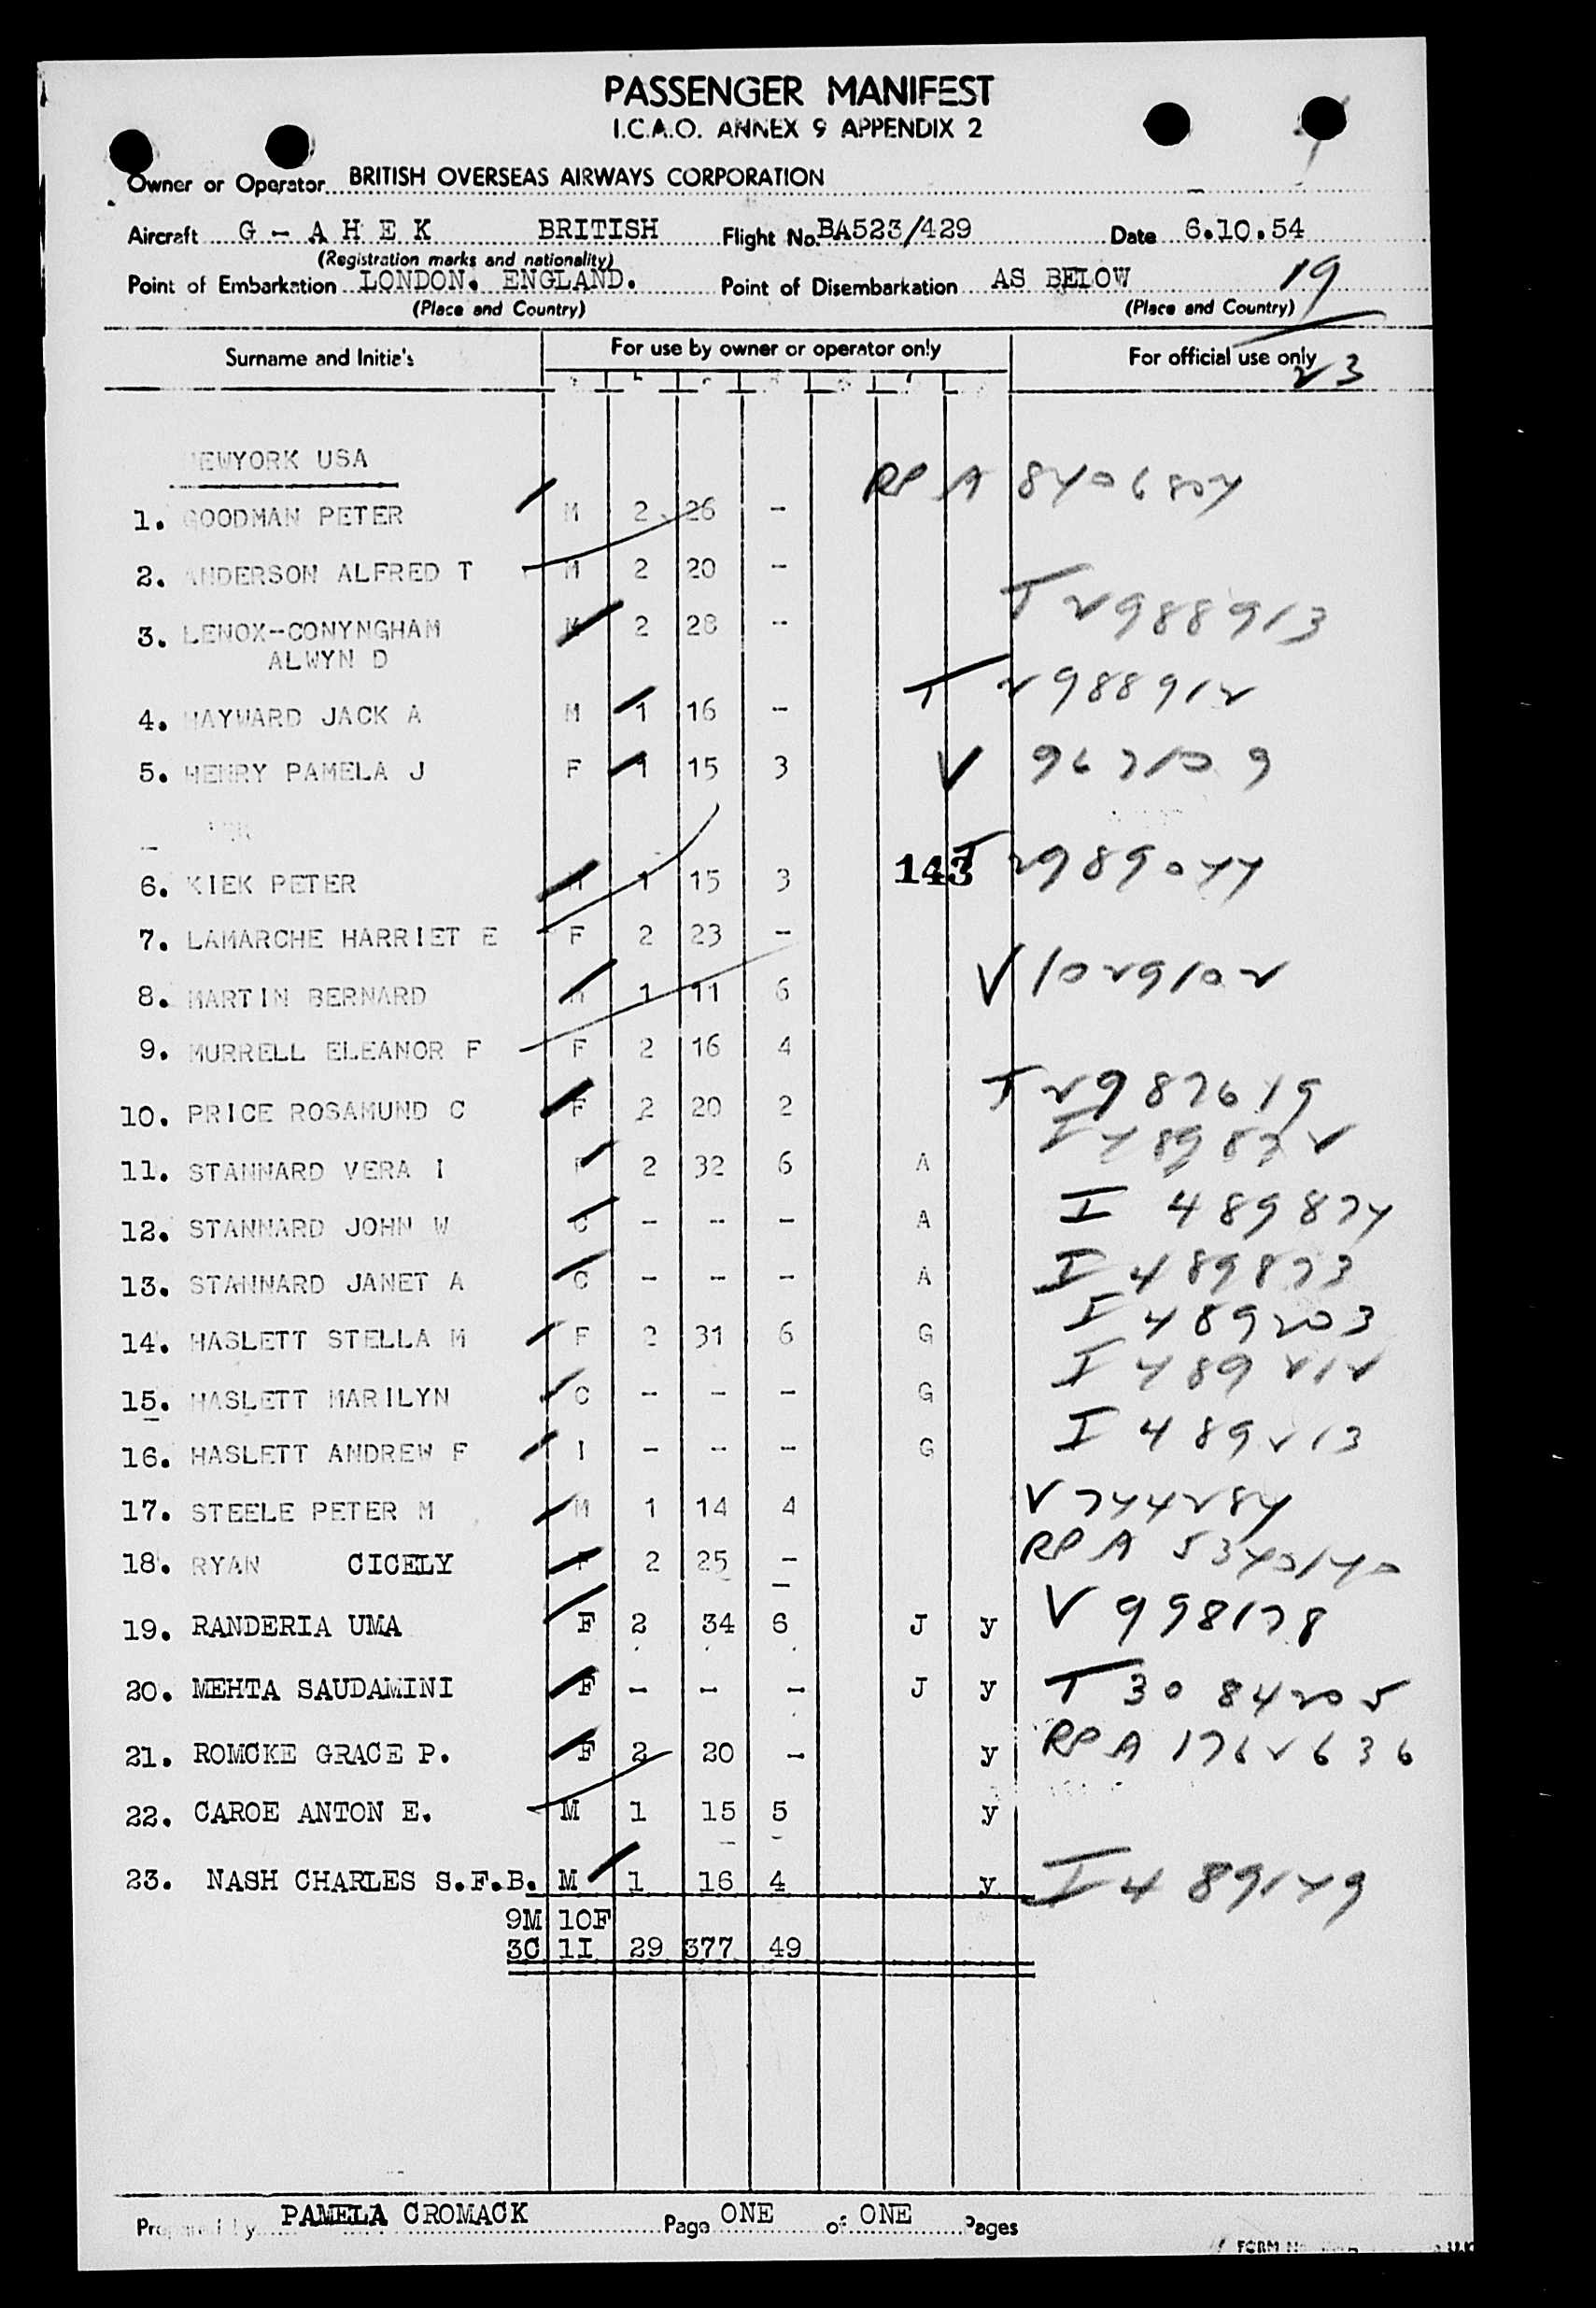 PASSENGER MANIFEST
I.C.A.O. ANNEX 9 APPENDIX 2
Owner or Operator BRITISH OVERSEAS AIRWAYS CORPORATION
Aircraft G - A H E K BRITISH Flight No. BA523/429 Date 6.10.54
(Registration marks and nationality)
Point of Embarkation LONDON. ENGLAND. Point of Disembarkation AS BELOW 19
(Place and Country) (Place and Country)
Surname and Initials For use by owner or operator only For official use only 23
NEWYORK USA
1. GOODMAN PETER M 2 26 - RP A 8406804
2. ANDERSON ALFRED T M 2 20 -
3. LENOX-CONYNGHAM M 2 28 - T 2988913
ALWYN D
4. HAYWARD JACK A M 1 16 - T 2988912
5. HENRY PAMELA J F 1 15 3 V 967109
6. KIEK PETER M 1 15 3 143 T 2989044
7. LAMARCHE HARRIET E F 2 23 -
8. MARTIN BERNARD M 1 11 6 V 1029102
9. MURRELL ELEANOR F F 2 16 4
10. PRICE ROSAMUND C F 2 20 2 T 2987619
11. STANNARD VERA I F 2 32 6 A I 489872
12. STANNARD JOHN W C - - - A I 489874
13. STANNARD JANET A C - - - A I 489873
14. HASLETT STELLA M F 2 31 6 G I 489203
15. HASLETT MARILYN C - - - G I 489212
16. HASLETT ANDREW F I - - - G I 489213
17. STEELE PETER M M 1 14 4 V 744284
18. RYAN CICELY F 2 25 - RP A 5340140
19. RANDERIA UMA F 2 34 6 J y V 998178
20. MEHTA SAUDAMINI F - - - J y T 3084205
21. ROMCKE GRACE P. F 2 20 - y RP A 1762636
22. CAROE ANTON E. M 1 15 5 y
23. NASH CHARLES S.F.B. M 1 16 4 y I 489149
9M 10F
3C 1I 29 377 49
Prepared by PAMELA CROMACK Page ONE of ONE Pages
FORM